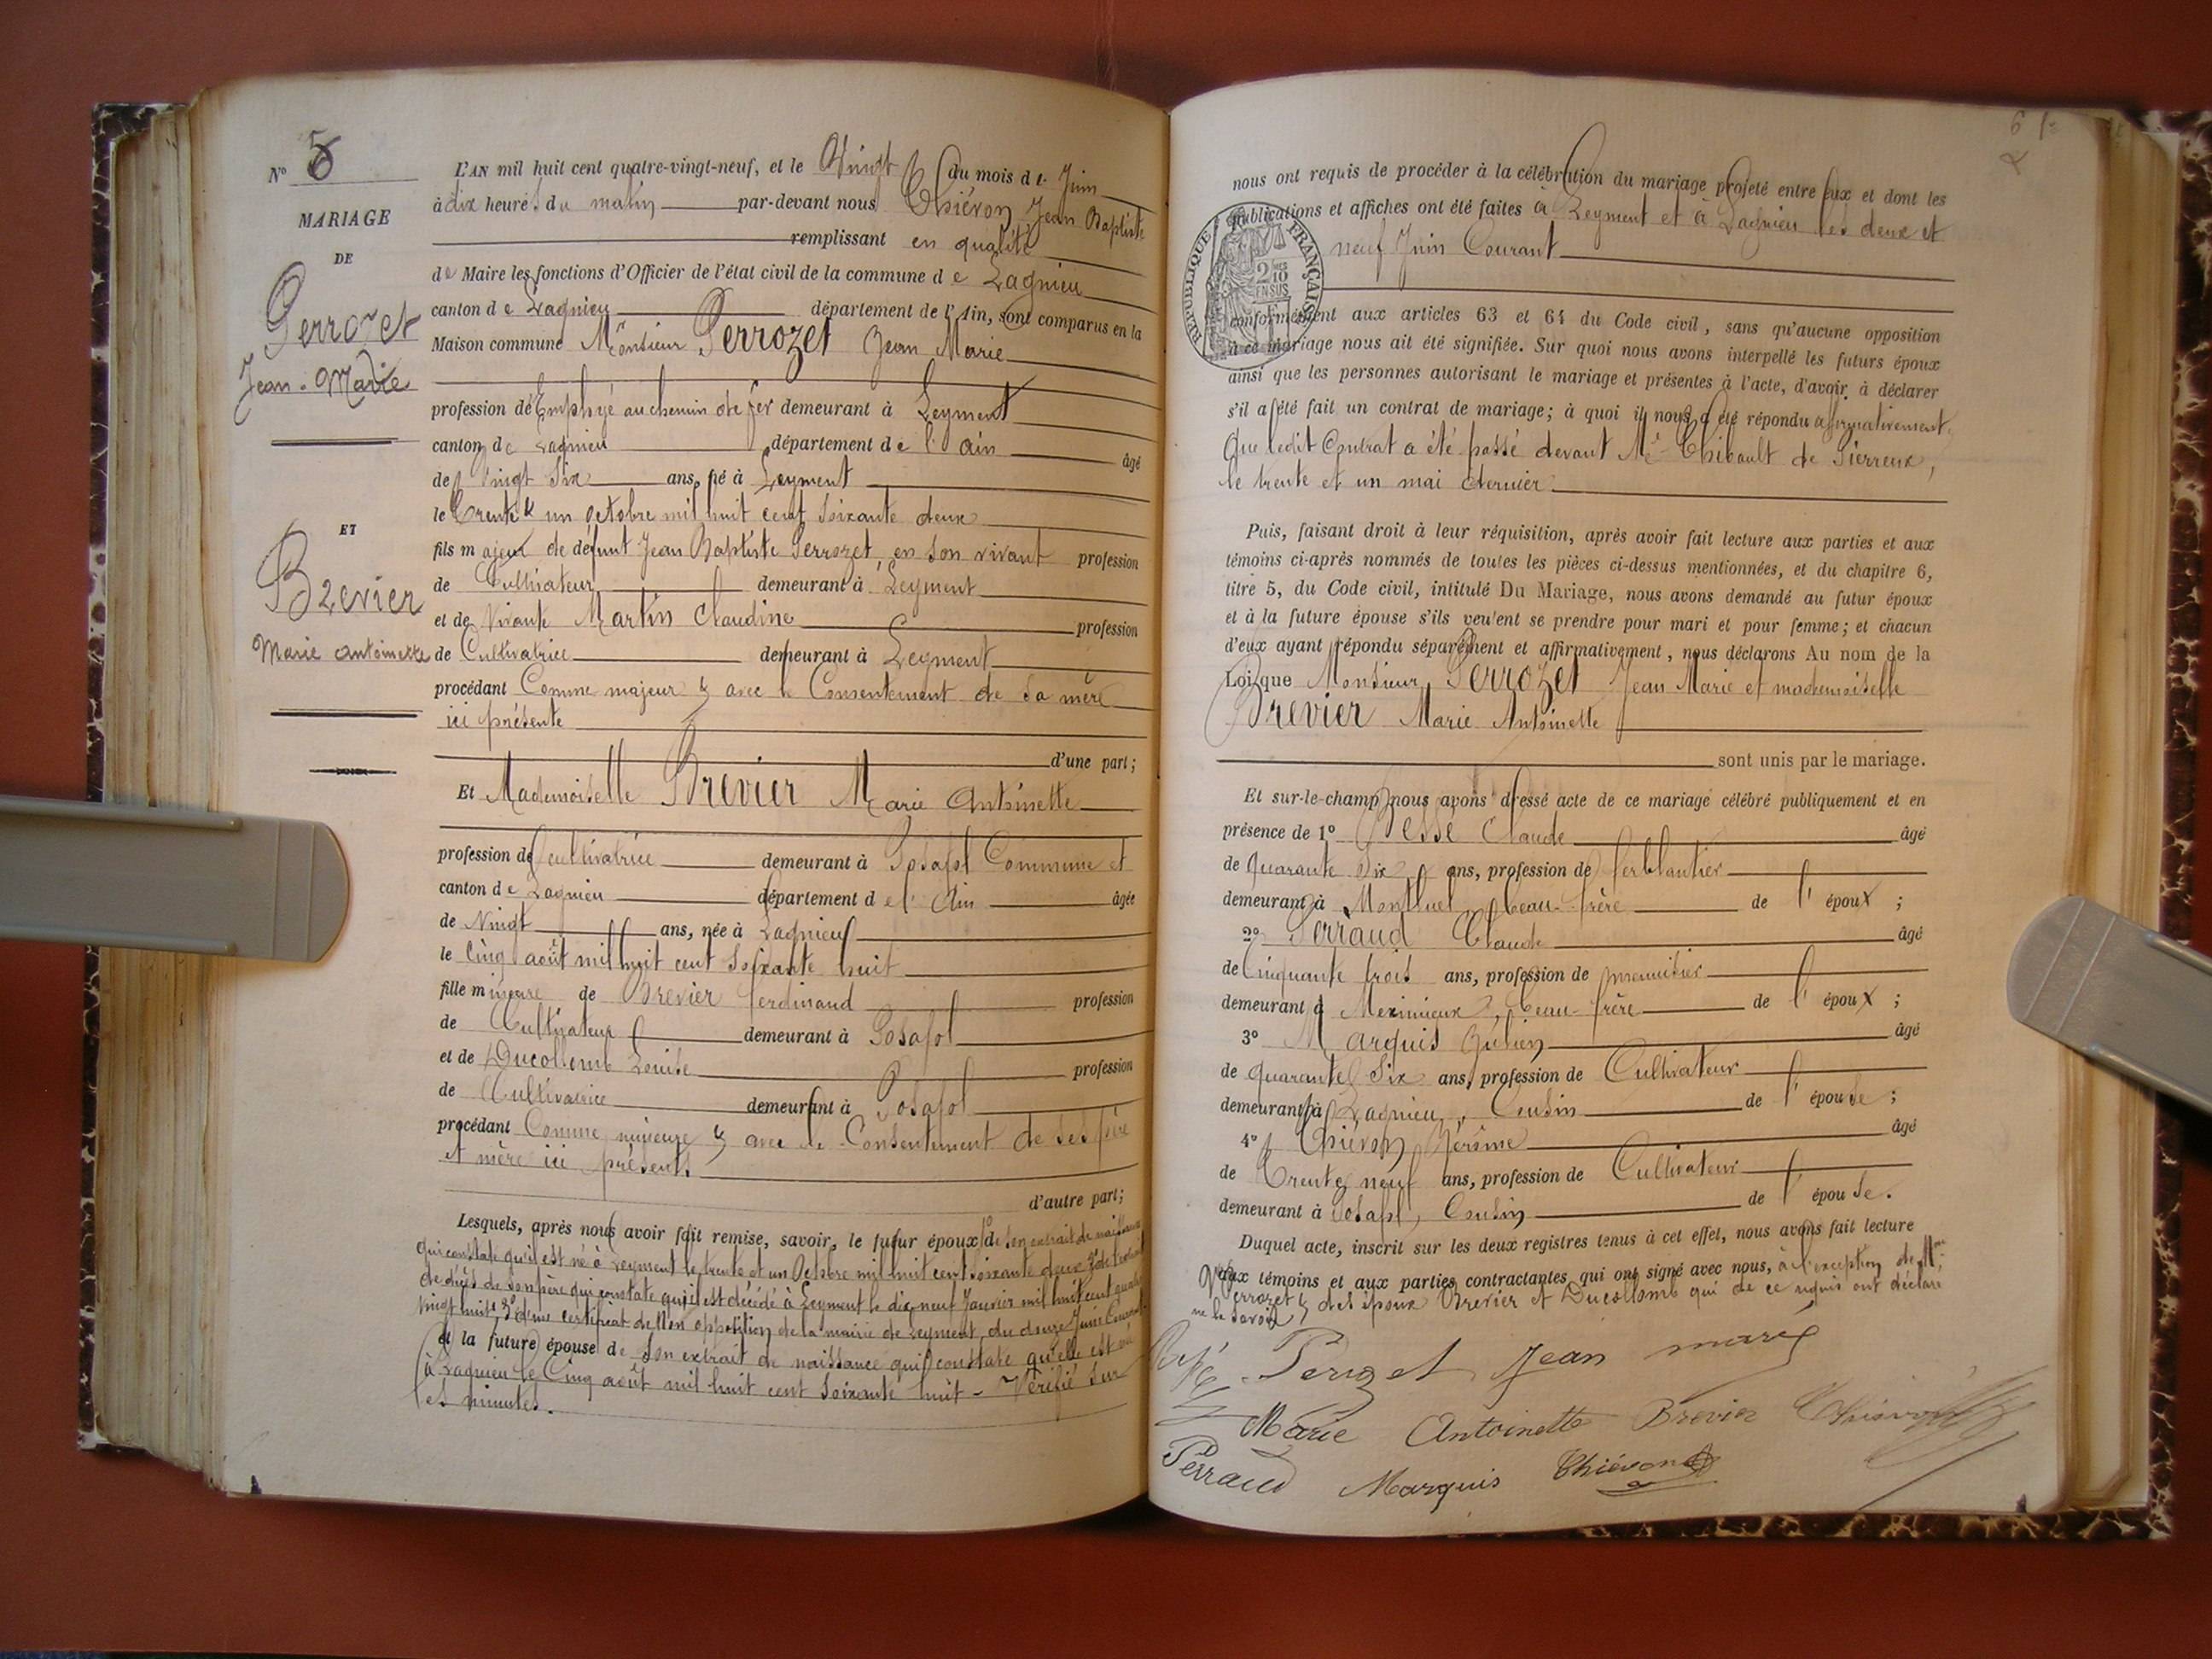 N° 5
MARIAGE
DE
Perrozet
Jean-Marie
ET
Brevier
Marie Antoinette
L'AN mil huit cent quatre-vingt-neuf, et le Vingt du mois de Juin
à dix heures du matin par-devant nous Thiévon Jean Baptiste
remplissant en qualité
de Maire les fonctions d'Officier de l'état civil de la commune de Lagnieu
canton de Lagnieu département de l'Ain, sont comparus en la
Maison commune Monsieur Perrozet Jean Marie
profession de Employé au chemin de fer demeurant à Leyment
canton de Lagnieu département de l'Ain âgé
de Vingt Six ans, né à Leyment
le Trente & un octobre mil huit cent soixante deux
fils majeur de défunt Jean Baptiste Perrozet, en son vivant profession
de Cultivateur demeurant à Leyment
et de Vivante Martin Claudine profession
de Cultivatrice demeurant à Leyment
procédant Comme majeur & avec le Consentement de sa mère
ici présente
d'une part;
Et Mademoiselle Brevier Marie Antoinette
profession de cultivatrice demeurant à Posafol Commune et
canton de Lagnieu département de l'Ain âgée
de Vingt ans, née à Lagnieu
le Cinq août mil huit cent soixante huit
fille mineure de Brevier Ferdinand profession
de Cultivateur demeurant à Posafol
et de Ducollomb Louise profession
de Cultivatrice demeurant à Posafol
procédant Comme mineure & avec le Consentement de ses père
et mère ici présents
d'autre part;
Lesquels, après nous avoir fait remise, savoir, le futur époux 1° de son extrait de naissance
qui constate qu'il est né à Leyment le trente et un Octobre mil huit cent soixante deux 2° de l'extrait
de décès de son père qui constate qu'il est décédé à Leyment le dix neuf Janvier mil huit cent quatre
vingt huit 3° d'un certificat de Non opposition de la mairie de Leyment, du douze Juin Courant
et la future épouse de son extrait de naissance qui constate qu'elle est née
à Lagnieu le Cinq août mil huit cent soixante huit - Vérifié sur
les minutes.
6
nous ont requis de procéder à la célébration du mariage projeté entre eux et dont les
publications et affiches ont été faites à Leyment et à Lagnieu les deux et
neuf Juin Courant
RÉPUBLIQUE FRANÇAISE
2/10 EN SUS
conformément aux articles 63 et 64 du Code civil, sans qu'aucune opposition
à ce mariage nous ait été signifiée. Sur quoi nous avons interpellé les futurs époux
ainsi que les personnes autorisant le mariage et présentes à l'acte, d'avoir à déclarer
s'il a été fait un contrat de mariage; à quoi il nous a été répondu affirmativement.
Que ledit Contrat a été passé devant Me Thibault de
le trente et un mai dernier.
Puis, faisant droit à leur réquisition, après avoir fait lecture aux parties et aux
témoins ci-après nommés de toutes les pièces ci-dessus mentionnées, et du chapitre 6,
titre 5, du Code civil, intitulé Du Mariage, nous avons demandé au futur époux
et à la future épouse s'ils veulent se prendre pour mari et pour femme; et chacun
d'eux ayant répondu séparément et affirmativement, nous déclarons Au nom de la
Loi que Monsieur Perrozet Jean Marie et mademoiselle
Brevier Marie Antoinette
sont unis par le mariage.
Et sur-le-champ nous avons dressé acte de ce mariage célébré publiquement et en
présence de 1° Claude âgé
de quarante six ans, profession de ferblantier
demeurant à Montluel, beau-frère de l'époux;
2° Perraud Claude âgé
de Cinquante trois ans, profession de menuisier
demeurant à Meximieux, beau-frère de l'époux;
3° Marquis Julien âgé
de quarante six ans, profession de Cultivateur
demeurant à Lagnieu, Cousin de l'épouse;
4° Thiévon Jérôme âgé
de Trente neuf ans, profession de Cultivateur
demeurant à Posafol, Cousin de l'épouse.
Duquel acte, inscrit sur les deux registres tenus à cet effet, nous avons fait lecture
aux témoins et aux parties contractantes qui ont signé avec nous, à l'exception de Mme
Ve Perrozet & des époux Brevier et Ducollomb qui de ce requis ont déclaré
ne le savoir
Perrozet Jean marie
Marie Antoinette Brevier Thiévon
Perraud Marquis Thiévon